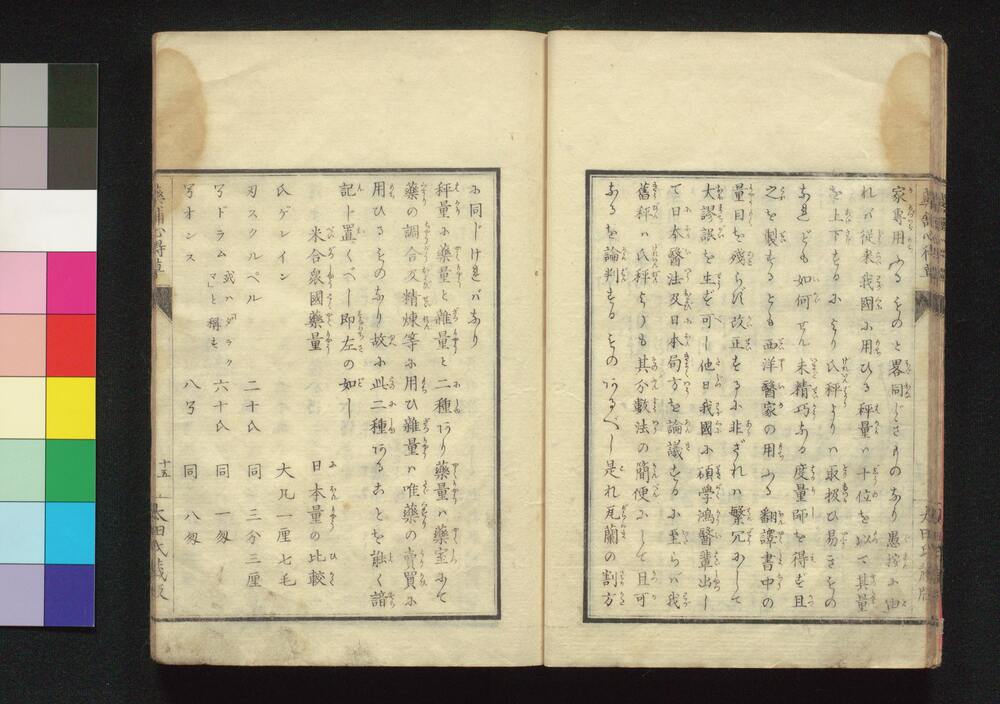 家專用ふるものと畧同じきものなり愚按に由
れバ從来我國に用ひる秤量ハ十位を以て其量
を上下するにより氏秤よりハ取扱ひ易きもの
なれども如何せん未精巧なる度量師を得ず且
之を製するとも西洋醫家の用ふる翻譯書中の
量目を殘らず改正をるに非ざれハ繁冗にして
大謬誤を生ず可し他日我國に碩學鴻醫輩出し
て日本醫法及日本局方を論議するに至らハ我
舊秤ハ氏秤よりも其分數法の簡便にして且可
なるを論判するものあるべし是れ瓦蘭の割方
に同じければなり
秤量に藥量と雜量と二種あり藥量ハ藥室にて
藥の調合及精煉等に用ひ雜量ハ唯藥の賣買に
用ひるものなり故に此二種あることを能く諳
記し置くべし即左の如し
米合衆國藥量 日本量の比較
氏ゲレイン 大凡一厘七毛
刄スクルペル 二十氏 同 三分三厘
ドラム 或ハ「ダラクマ」と稱す 六十氏 同 一匁
オンス 八 同 八匁
藥舗心得草 十五 太田氏藏版